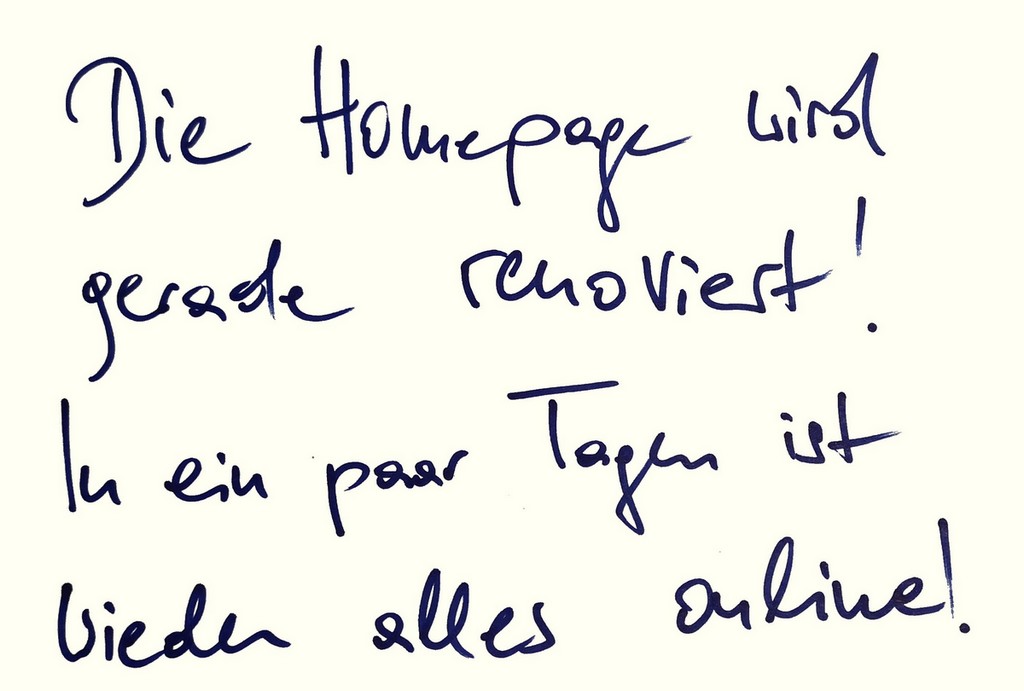 Die Homepage wird
gerade renoviert!
In ein paar Tagen ist
wieder alles online!